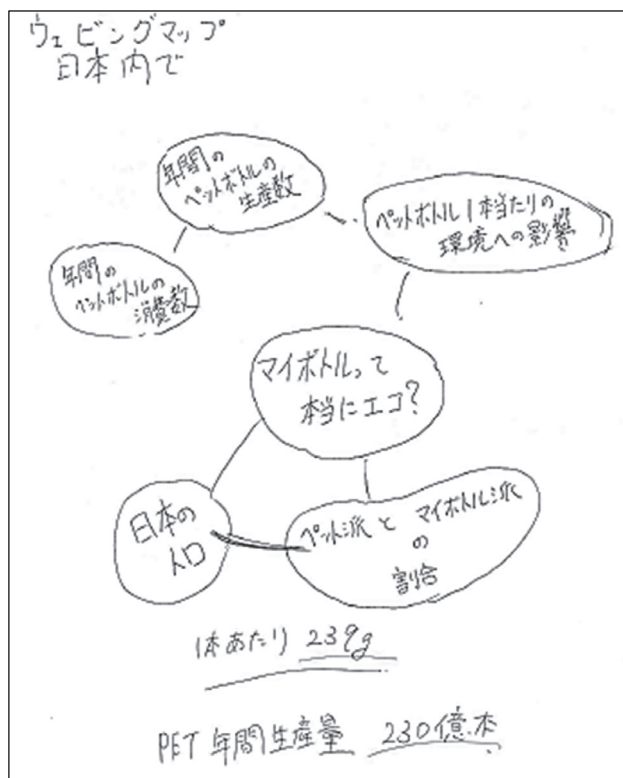 ウェビングマップ
日本内で
年間の
ペットボトルの
生産数
ペットボトル1本当たりの
環境への影響
年間の
ペットボトルの
消費数
マイボトルって
本当にエコ?
日本の
人口
ペット派と マイボトル派
の
割合
1本あたり 239g
PET 年間生産量 230億本